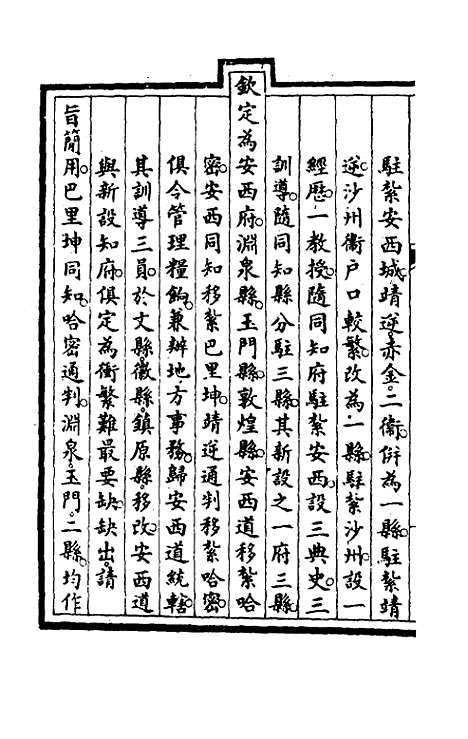 駐紥安西城靖逆赤金二衞併為一縣駐紥靖
逆沙州衞户口較繁改為一縣駐紥沙州設一
經歴一教授隨同知府駐紥安西設三典史三
訓導隨同知縣分駐三縣其新設之一府三縣
欽定為安西府淵泉縣玉門縣敦煌縣安西道移紥哈
密安西同知移紥巴里坤靖逆通判移紥哈密
俱令管理糧餉兼辦地方事務歸安西道統轄
其訓導三員於文縣徽縣鎮原縣移改安西道
與新設知府俱定為衝繁難最要缺缺出請
旨簡用巴里坤同知哈密通判淵泉玉門二縣均作